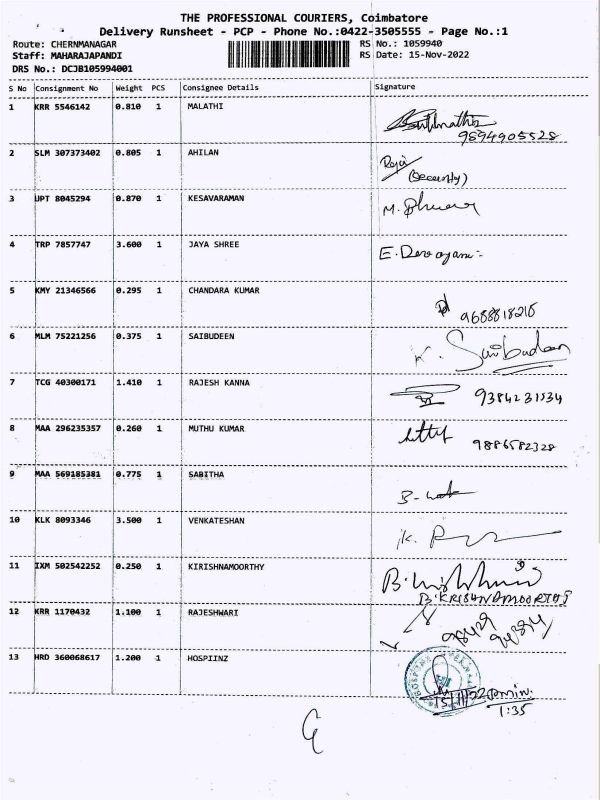 THE PROFESSIONAL COURIERS, Coimbatore
Delivery Runsheet - PCP - Phone No.:0422-3505555 - Page No.:1
Route: CHERNMANAGAR RS No.: 1059940
Staff: MAHARAJAPANDI RS Date: 15-Nov-2022
DRS No.: DCJB105994001
S No Consignment No Weight PCS Consignee Details Signature
1 KRR 5546142 0.810 1 MALATHI
9894905528
2 SLM 307373402 0.805 1 AHILAN Raja
(Security)
3 UPT 8045294 0.870 1 KESAVARAMAN M.
4 TRP 7857747 3.600 1 JAYA SHREE E. Devayani
5 KMY 21346566 0.295 1 CHANDARA KUMAR
9688818218
6 MLM 75221256 0.375 1 SAIBUDEEN K. Saibudeen
7 TCG 40300171 1.410 1 RAJESH KANNA 9384231534
8 MAA 296235357 0.260 1 MUTHU KUMAR
9886582328
9 MAA 569185381 0.775 1 SABITHA
10 KLK 8093346 3.500 1 VENKATESHAN K.
11 IXM 502542252 0.250 1 KIRISHNAMOORTHY
B.KRISHNAMOORTHY
12 KRR 1170432 1.100 1 RAJESHWARI
13 HRD 360068617 1.200 1 HOSPIINZ
15/11/22
1:35